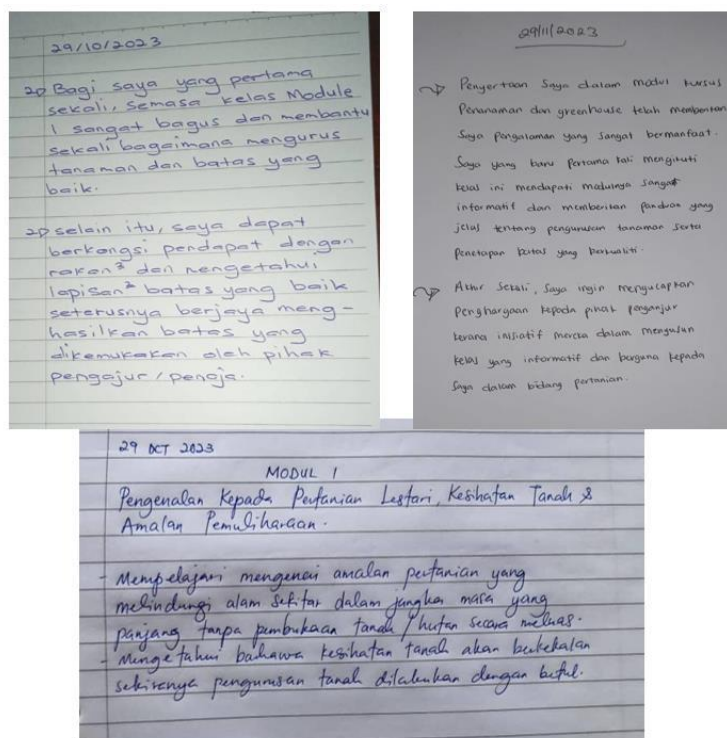 29/10/2023
Bagi saya yang pertama
sekali, semasa kelas Module
1 sangat bagus dan membantu
sekali bagaimana mengurus
tanaman dan batas yang
baik.
selain itu, saya dapat
berkongsi pendapat dengan
rakan² dan mengetahui
lapisan² batas yang baik
seterusnya berjaya meng-
hasilkan batas yang
dikemukakan oleh pihak
pengajur/penaja.
29/11/2023
Penyertaan Saya dalam modul kursus
Penanaman dan greenhouse telah memberikan
Saya pengalaman yang sangat bermanfaat.
Saya yang baru pertama kali mengikuti
kelas ini mendapati modulnya sangat
informatif dan memberikan panduan yang
jelas tentang pengurusan tanaman serta
Penetapan batas yang berkualiti.
Akhir Sekali, Saya ingin mengucapkan
Penghargaan kepada pihak penganjur
kerana inisiatif mereka dalam mengusun
kelas yang informatif dan berguna kepada
Saya dalam bidang pertanian.
29 OCT 2023
MODUL 1
Pengenalan Kepada Pertanian Lestari, Kesihatan Tanah &
Amalan Pemuliharaan.
- Mempelajari mengenai amalan pertanian yang
melindungi alam sekitar dalam jangka masa yang
panjang tanpa pembukaan tanah / hutan secara meluas.
- Mengetahui bahawa kesihatan tanah akan berkekalan
sekiranya pengurusan tanah dilakukan dengan betul.